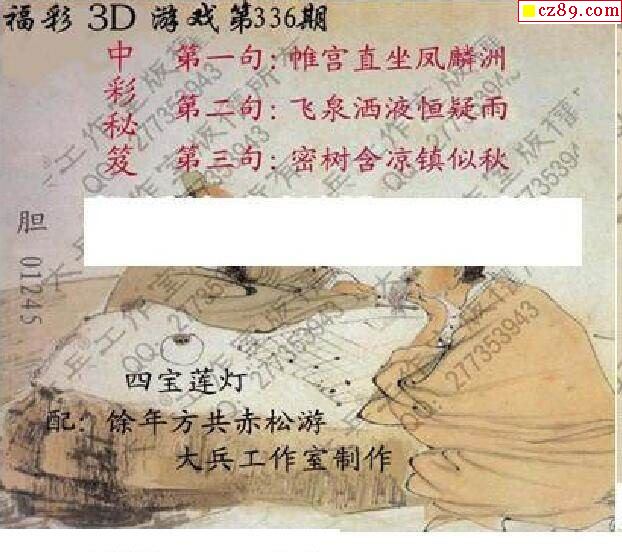 福彩 3D 游戏第336期
cz89.com
中彩秘笈
第一句：帷宫直坐凤麟洲
第二句：飞泉洒液恒疑雨
第三句：密树含凉镇似秋
胆 01245
四宝莲灯
配：馀年方共赤松游
大兵工作室制作
大兵工作室版权所有
QQ：277353943